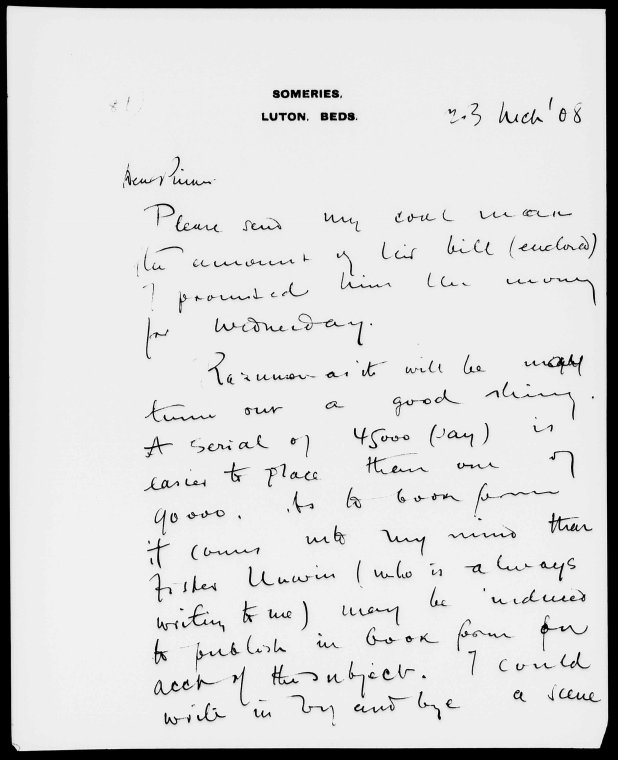 SOMERIES,
LUTON. BEDS.
23 Mch' 08
Dear Pinker
Please send my coal man
the amount of his bill (enclosed)
I promised him the money
for Wednesday.
Razumov as it will be may
turn out a good thing.
A serial of 45000 (say) is
easier to place than one of
90000. As to book form
it comes into my mind that
Fisher Unwin (who is always
writing to me) may be induced
to publish in book form on
acct of the subject. I could
write in by and bye a scene